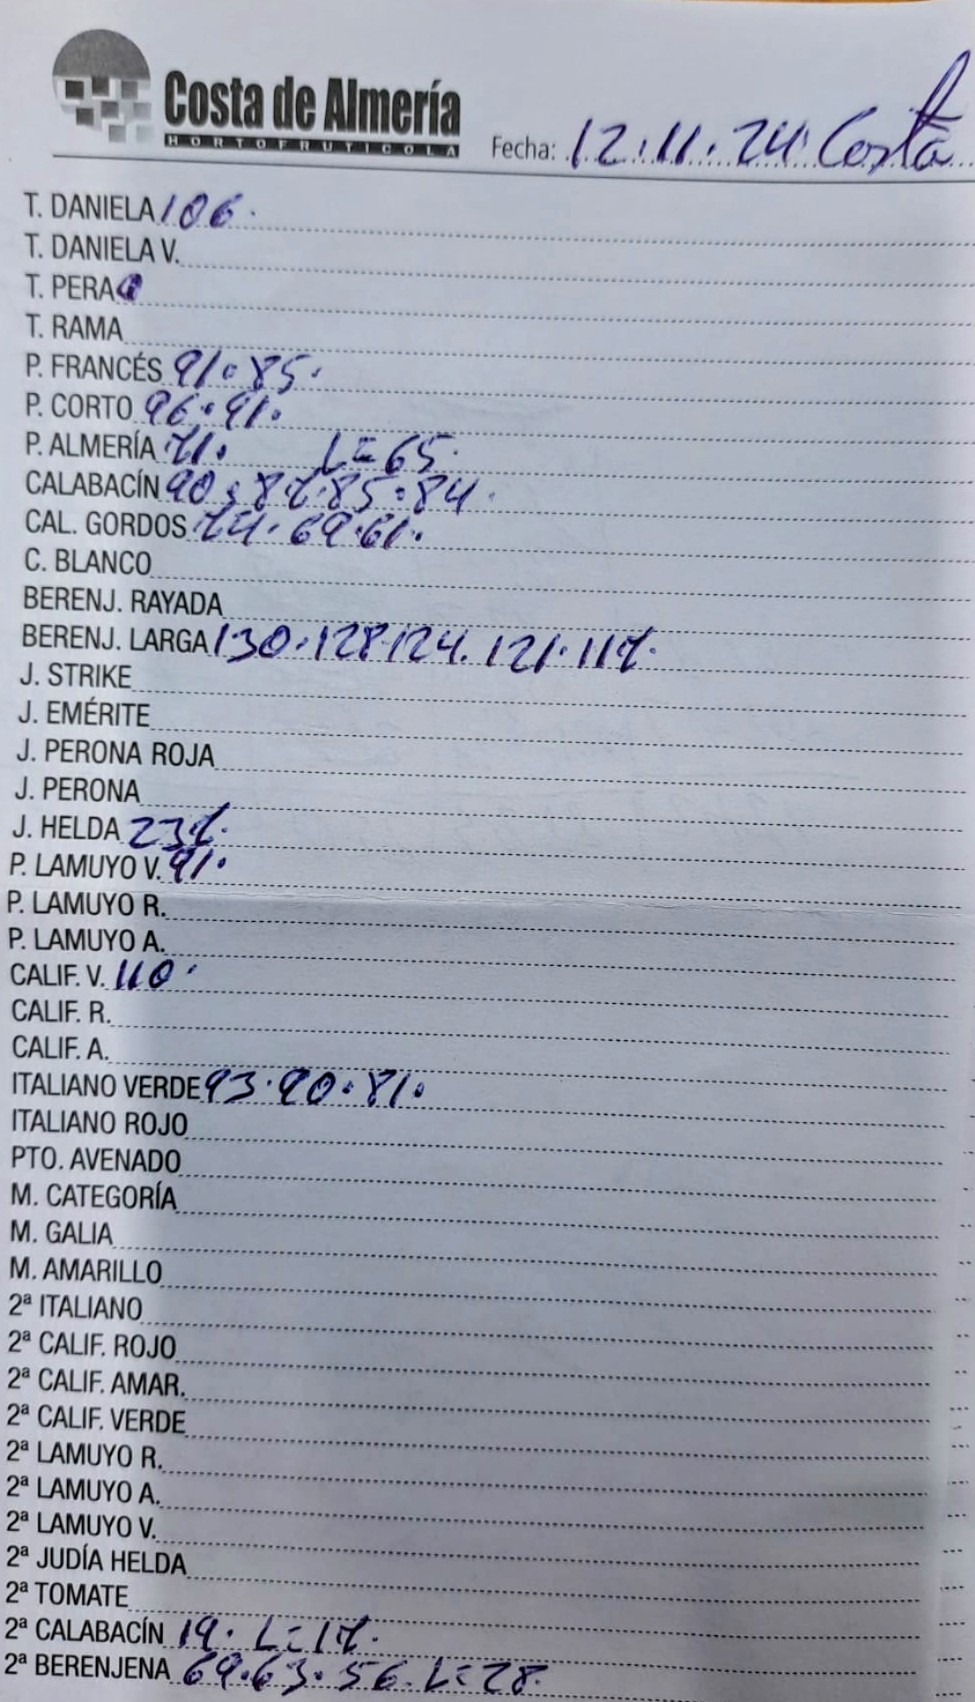 Costa de Almería
HORTOFRUTICOLA
Fecha: 12.11.24 Costa
T. DANIELA 106.
T. DANIELA V.
T. PERA
T. RAMA
P. FRANCÉS 91.85.
P. CORTO 96.91.
P. ALMERÍA 71. L=65.
CALABACÍN 90.87.85.84.
CAL. GORDOS 74.69.61.
C. BLANCO
BERENJ. RAYADA
BERENJ. LARGA 130.128.124.121.117.
J. STRIKE
J. EMÉRITE
J. PERONA ROJA
J. PERONA
J. HELDA 237.
P. LAMUYO V. 91.
P. LAMUYO R.
P. LAMUYO A.
CALIF. V. 110.
CALIF. R.
CALIF. A.
ITALIANO VERDE 93.90.81.
ITALIANO ROJO
PTO. AVENADO
M. CATEGORÍA
M. GALIA
M. AMARILLO
2ª ITALIANO
2ª CALIF. ROJO
2ª CALIF. AMAR.
2ª CALIF. VERDE
2ª LAMUYO R.
2ª LAMUYO A.
2ª LAMUYO V.
2ª JUDÍA HELDA
2ª TOMATE
2ª CALABACÍN 19. L=17.
2ª BERENJENA 69.63.56. L=28.